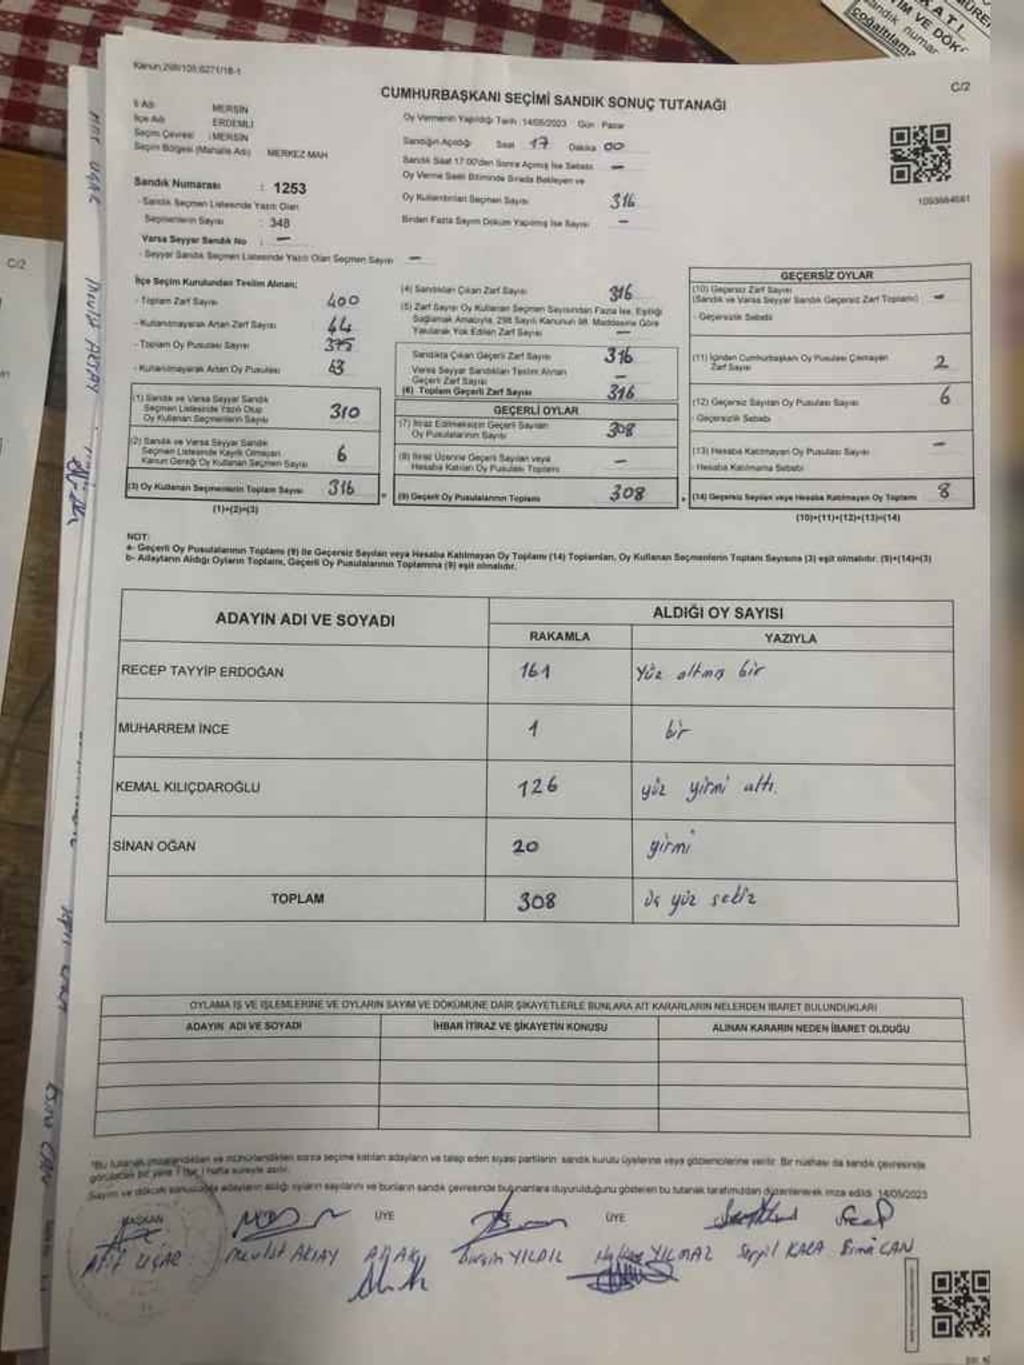 Kanun:298/105;6271/18-1
C/2
CUMHURBAŞKANI SEÇİMİ SANDIK SONUÇ TUTANAĞI
İl Adı MERSİN
İlçe Adı ERDEMLİ
Seçim Çevresi :MERSİN
Seçim Bölgesi (Mahalle Adı) MERKEZ MAH
Sandık Numarası : 1253
- Sandık Seçmen Listesinde Yazılı Olan
Seçmenlerin Sayısı : 348
Varsa Seyyar Sandık No : —
- Seyyar Sandık Seçmen Listesinde Yazılı Olan Seçmen Sayısı —
Oy Vermenin Yapıldığı Tarih :14/05/2023 Gün : Pazar
Sandığın Açıldığı Saat 17 Dakika 00
Sandık Saat 17:00'den Sonra Açılmış İse Sebebi —
Oy Verme Saati Bitiminde Sırada Bekleyen ve
Oy Kullandırılan Seçmen Sayısı 316
Birden Fazla Sayım Döküm Yapılmış İse Sayısı —
İlçe Seçim Kurulundan Teslim Alınan;
- Toplam Zarf Sayısı 400
- Kullanılmayarak Artan Zarf Sayısı 44
- Toplam Oy Pusulası Sayısı 375
- Kullanılmayarak Artan Oy Pusulası 63
(1) Sandık ve Varsa Seyyar Sandık
Seçmen Listesinde Yazılı Olup
Oy Kullanan Seçmenlerin Sayısı 310
(2) Sandık ve Varsa Seyyar Sandık
Seçmen Listesinde Kayıtlı Olmayan
Kanun Gereği Oy Kullanan Seçmen Sayısı 6
(3) Oy Kullanan Seçmenlerin Toplam Sayısı 316
(1)+(2)=(3)
(4) Sandıktan Çıkan Zarf Sayısı 316
(5) Zarf Sayısı Oy Kullanan Seçmen Sayısından Fazla İse, Eşitliği
Sağlamak Amacıyla, 298 Sayılı Kanunun 98. Maddesine Göre
Yakılarak Yok Edilen Zarf Sayısı —
Sandıkta Çıkan Geçerli Zarf Sayısı 316
Varsa Seyyar Sandıktan Teslim Alınan
Geçerli Zarf Sayısı —
(6) Toplam Geçerli Zarf Sayısı 316
GEÇERLİ OYLAR
(7) İtiraz Edilmeksizin Geçerli Sayılan
Oy Pusulalarının Sayısı 308
(8) İtiraz Üzerine Geçerli Sayılan veya
Hesaba Katılan Oy Pusulası Toplamı —
(9) Geçerli Oy Pusulalarının Toplamı 308
GEÇERSİZ OYLAR
(10) Geçersiz Zarf Sayısı
(Sandık ve Varsa Seyyar Sandık Geçersiz Zarf Toplamı) —
- Geçersizlik Sebebi
(11) İçinden Cumhurbaşkanı Oy Pusulası Çıkmayan
Zarf Sayısı 2
(12) Geçersiz Sayılan Oy Pusulası Sayısı 6
- Geçersizlik Sebebi
(13) Hesaba Katılmayan Oy Pusulası Sayısı —
- Hesaba Katılmama Sebebi
(14) Geçersiz Sayılan veya Hesaba Katılmayan Oy Toplamı 8
(10)+(11)+(12)+(13)=(14)
NOT:
a- Geçerli Oy Pusulalarının Toplamı (9) ile Geçersiz Sayılan veya Hesaba Katılmayan Oy Toplamı (14) Toplamları, Oy Kullanan Seçmenlerin Toplam Sayısına (3) eşit olmalıdır. (9)+(14)=(3)
b- Adayların Aldığı Oyların Toplamı, Geçerli Oy Pusulalarının Toplamına (9) eşit olmalıdır.
ADAYIN ADI VE SOYADI ALDIĞI OY SAYISI
RAKAMLA YAZIYLA
RECEP TAYYİP ERDOĞAN 161 Yüz altmış bir
MUHARREM İNCE 1 bir
KEMAL KILIÇDAROĞLU 126 yüz yirmi altı.
SİNAN OĞAN 20 yirmi
TOPLAM 308 üç yüz sekiz
OYLAMA İŞ VE İŞLEMLERİNE VE OYLARIN SAYIM VE DÖKÜMÜNE DAİR ŞİKAYETLERLE BUNLARA AİT KARARLARIN NELERDEN İBARET BULUNDUKLARI
ADAYIN ADI VE SOYADI İHBAR İTİRAZ VE ŞİKAYETİN KONUSU ALINAN KARARIN NEDEN İBARET OLDUĞU
*Bu tutanak imzalandıktan ve mühürlendikten sonra seçime katılan adayların ve talep eden siyasi partilerin sandık kurulu üyelerine veya gözlemcilerine verilir. Bir nüshası da sandık çevresinde
görülebilen bir yere 1 (bir) hafta süreyle asılır.
Sayım ve döküm sonucunda adayların aldığı oyların sayılarını ve bunların sandık çevresinde bulunanlara duyurulduğunu gösteren bu tutanak tarafımızdan düzenlenerek imza edildi. 14/05/2023
BAŞKAN ÜYE ÜYE
Atıf UÇAR Mevlüt AKTAY YILDIZ Hakan YILMAZ Serpil KARA CAN